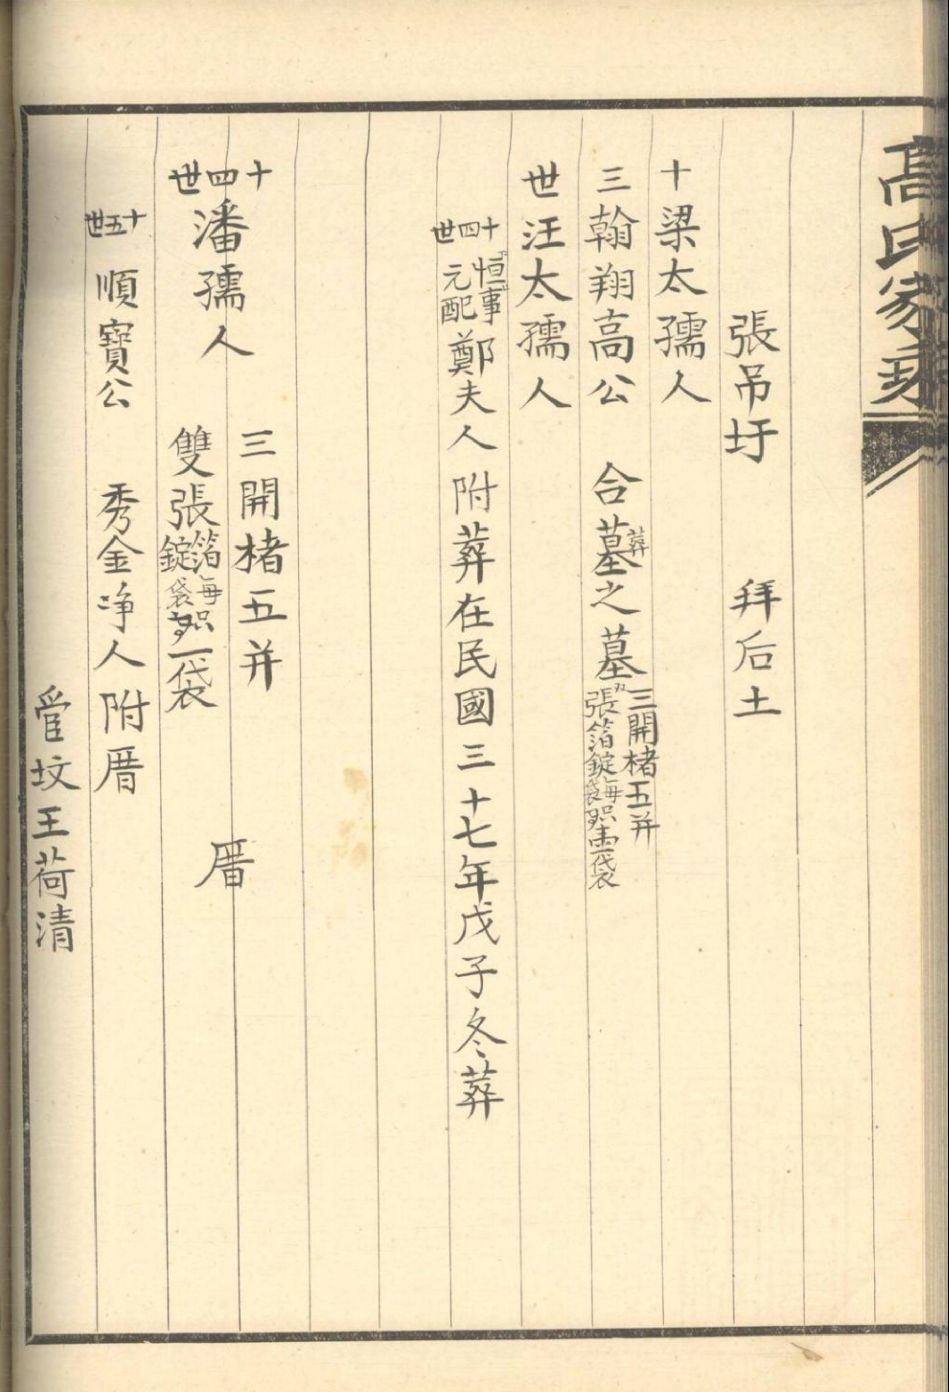 高氏家
張吊圩　拜后土
十梁太孺人
三翰翔高公　合葬墓之墓　三開楮五并　九張箔錠每袋　袋
世汪太孺人
十四世　恒事元配　鄭夫人附葬在民國三十七年戊子冬葬
十四世　潘孺人　三開楮五并　雙張箔錠每袋　一袋　厝
十五世　順寶公　秀金净人附厝
管坟王荷清